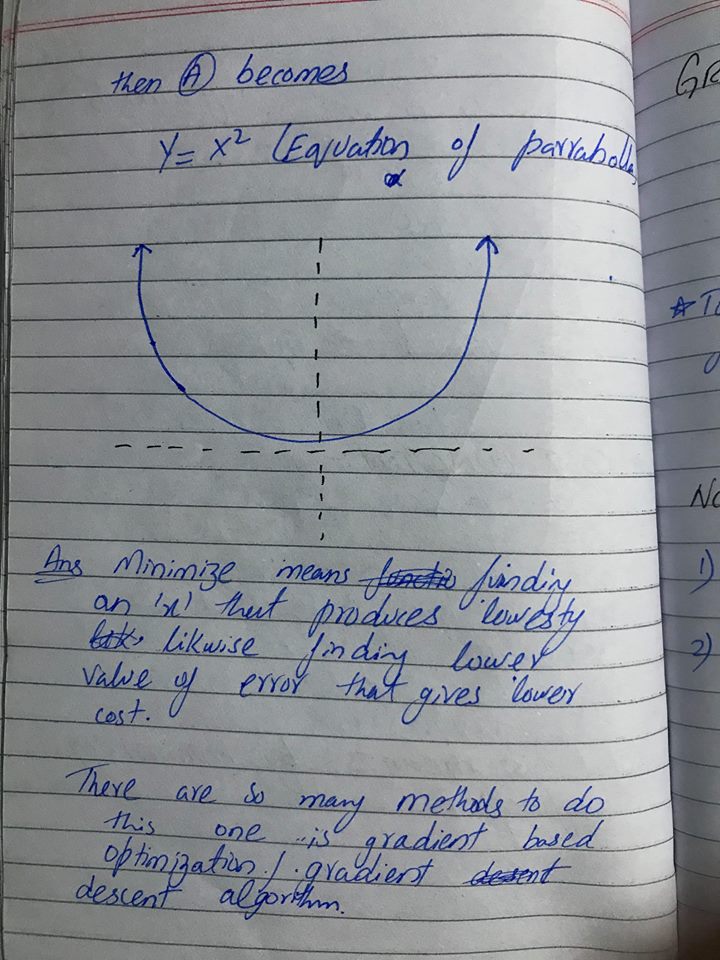 then Ⓐ becomes
Y = x² (Equation of parrabolla
Ans Minimize means finding
an 'x' that produces lowest y
likwise finding lower
value of error that gives lower
cost.
There are so many methods to do
this one is gradient based
optimization / gradient
descent algorithm.
GR
1)
2)